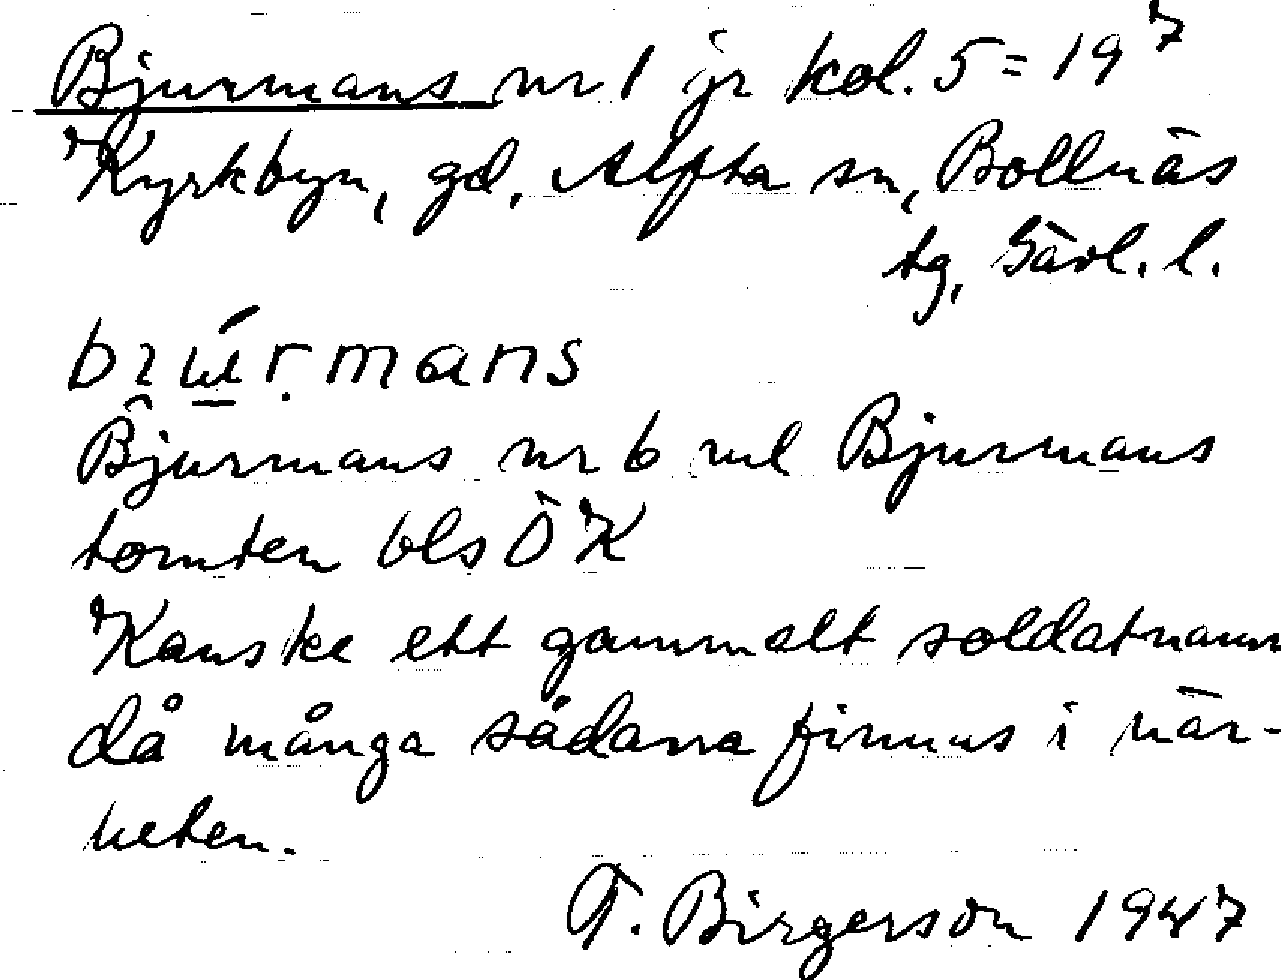 Bjurmans nr 1 jr kol. 5 = 19⁷
Kyrkbyn, gd, Alfta sn, Bollnäs
tg, Gävl. l.
Bjurmans nr 6 vid Bjurmans
tomten bls ÖK
Kanske ett gammalt soldatnamn
då många sådana finnas i när-
heten.
T. Birgerson 1947